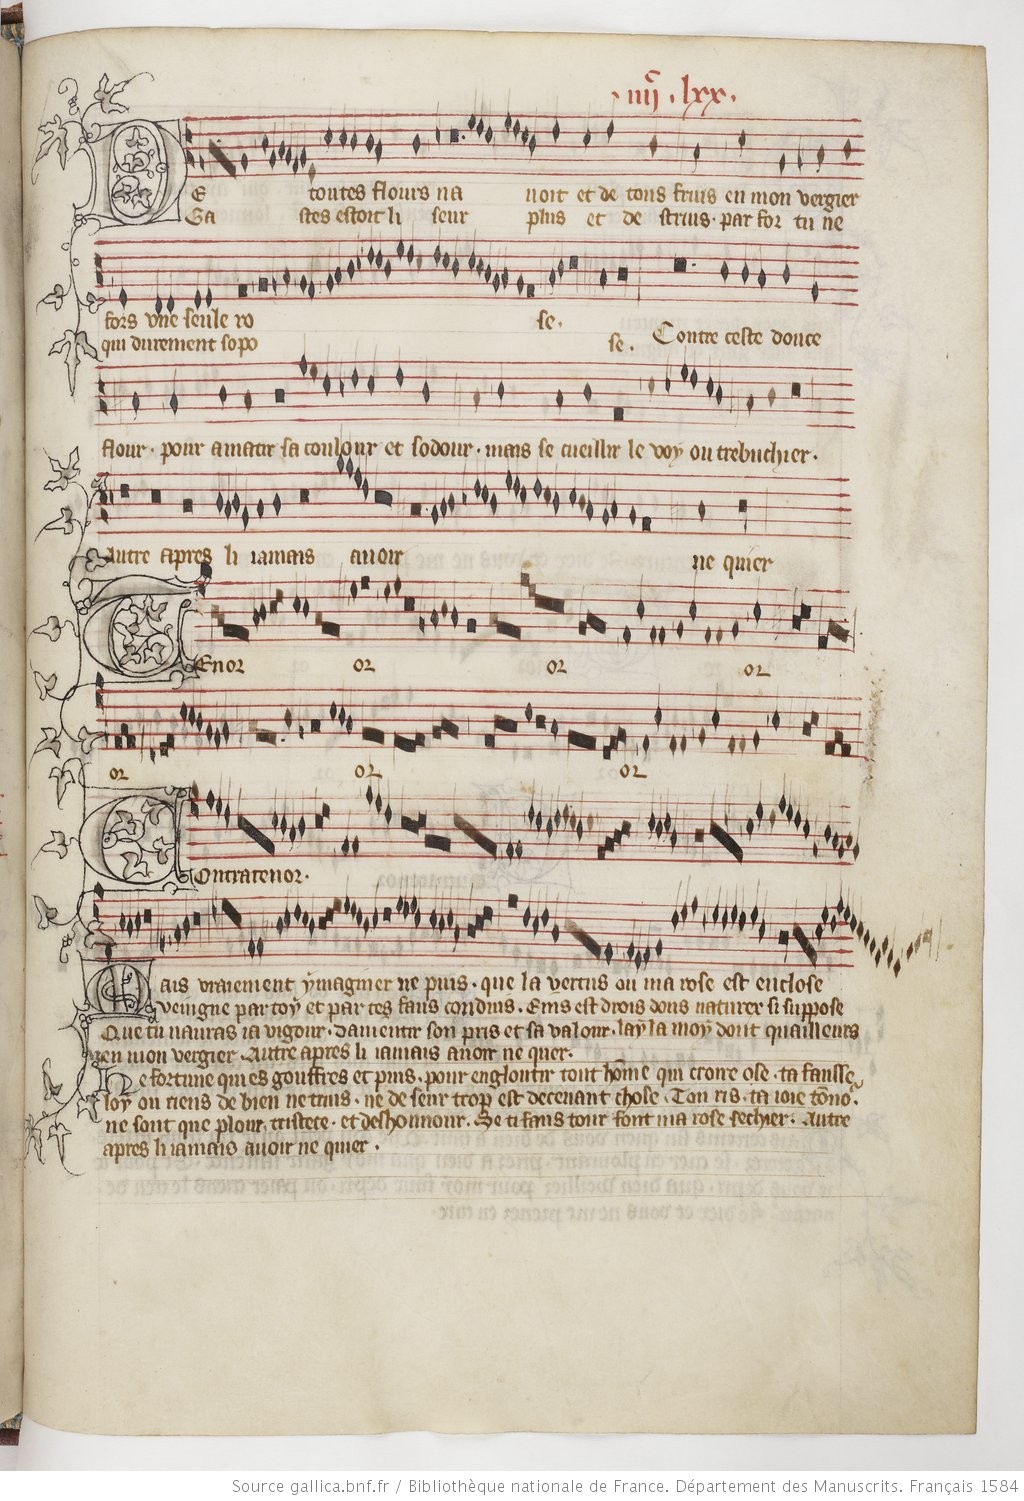 iiij . lxx.
DE toutes flours na uoit et de tous fruis en mon vergier
Ga stes estoit li seur plus et de struis. par for tu ne
fors vne seule ro se.
qui durement sopo se. Contre ceste douce
flour. pour amatir sa coulour et sodour. mais se cueillir le voy ou trebuchier.
Autre apres li iamais auoir ne quier
TEnor or or or
or or or
COntratenor.
Mais vraiement ymaginer ne puis. que la vertus ou ma rose est enclose
veingne par toy et par tes faus conduis. Eins est drois dons naturex si suppose
Que tu nauras ia vigour. damentir son pris et sa valour. lay la moy dont quailleurs
en mon vergier. Autre apres li iamais auoir ne quier.
He fortune qui es gouffres et puis. pour engloutir tout home qui croire ose. ta fausse
loy ou riens de bien ne truis. ne de seur trop est deceuant chose. Ton ris. ta ioie
ne sont que plour. tristece. et deshonnour. Se ti faus tour font ma rose sechier. Autre
apres li iamais auoir ne quier.
Source gallica.bnf.fr / Bibliothèque nationale de France. Département des Manuscrits. Français 1584